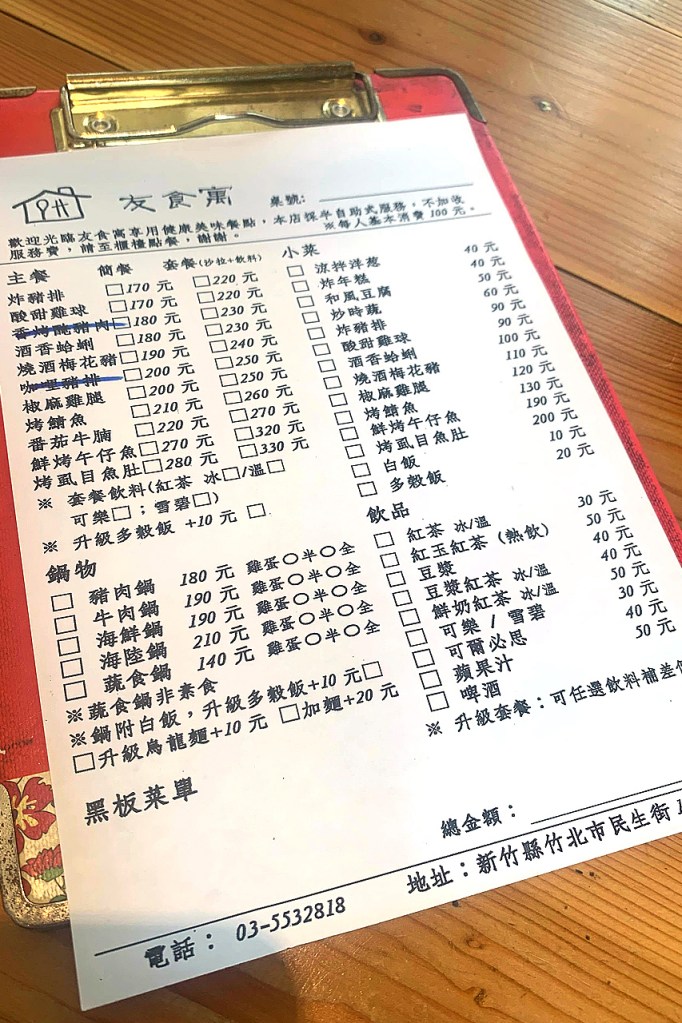 友食寓 桌號:
歡迎光臨友食寓享用健康美味餐點,本店採半自助式服務,不加收
服務費,請至櫃檯點餐,謝謝。 ※每人基本消費100元。
主餐 簡餐 套餐(沙拉+飲料)
炸豬排 □170元 □220元
酸甜雞球 □170元 □220元
香烤醃豬肉 □180元 □230元
酒香蛤蜊 □180元 □230元
燒酒梅花豬 □190元 □240元
咖哩豬排 □200元 □250元
椒麻雞腿 □200元 □250元
烤鯖魚 □210元 □260元
番茄牛腩 □220元 □270元
鮮烤午仔魚 □270元 □320元
烤虱目魚肚 □280元 □330元
※ 套餐飲料(紅茶 冰□/溫□
可樂□;雪碧□)
※ 升級多穀飯 +10元 □
鍋物
□ 豬肉鍋 180元 雞蛋○半○全
□ 牛肉鍋 190元 雞蛋○半○全
□ 海鮮鍋 190元 雞蛋○半○全
□ 海陸鍋 210元 雞蛋○半○全
□ 蔬食鍋 140元 雞蛋○半○全
※蔬食鍋非素食
※鍋附白飯,升級多穀飯+10元□
□升級烏龍麵+10元 □加麵+20元
黑板菜單
小菜
□ 涼拌洋蔥 40元
□ 炸年糕 40元
□ 和風豆腐 50元
□ 炒時蔬 60元
□ 炸豬排 90元
□ 酸甜雞球 90元
□ 酒香蛤蜊 100元
□ 燒酒梅花豬 110元
□ 椒麻雞腿 120元
□ 烤鯖魚 130元
□ 鮮烤午仔魚 190元
□ 烤虱目魚肚 200元
□ 白飯 10元
□ 多穀飯 20元
飲品
□ 紅茶 冰/溫 30元
□ 紅玉紅茶(熱飲) 50元
□ 豆漿 40元
□ 豆漿紅茶 冰/溫 40元
□ 鮮奶紅茶 冰/溫 50元
□ 可樂 / 雪碧 30元
□ 可爾必思 40元
□ 蘋果汁 50元
□ 啤酒
※ 升級套餐:可任選飲料補差
總金額:
電話: 03-5532818 地址:新竹縣竹北市民生街